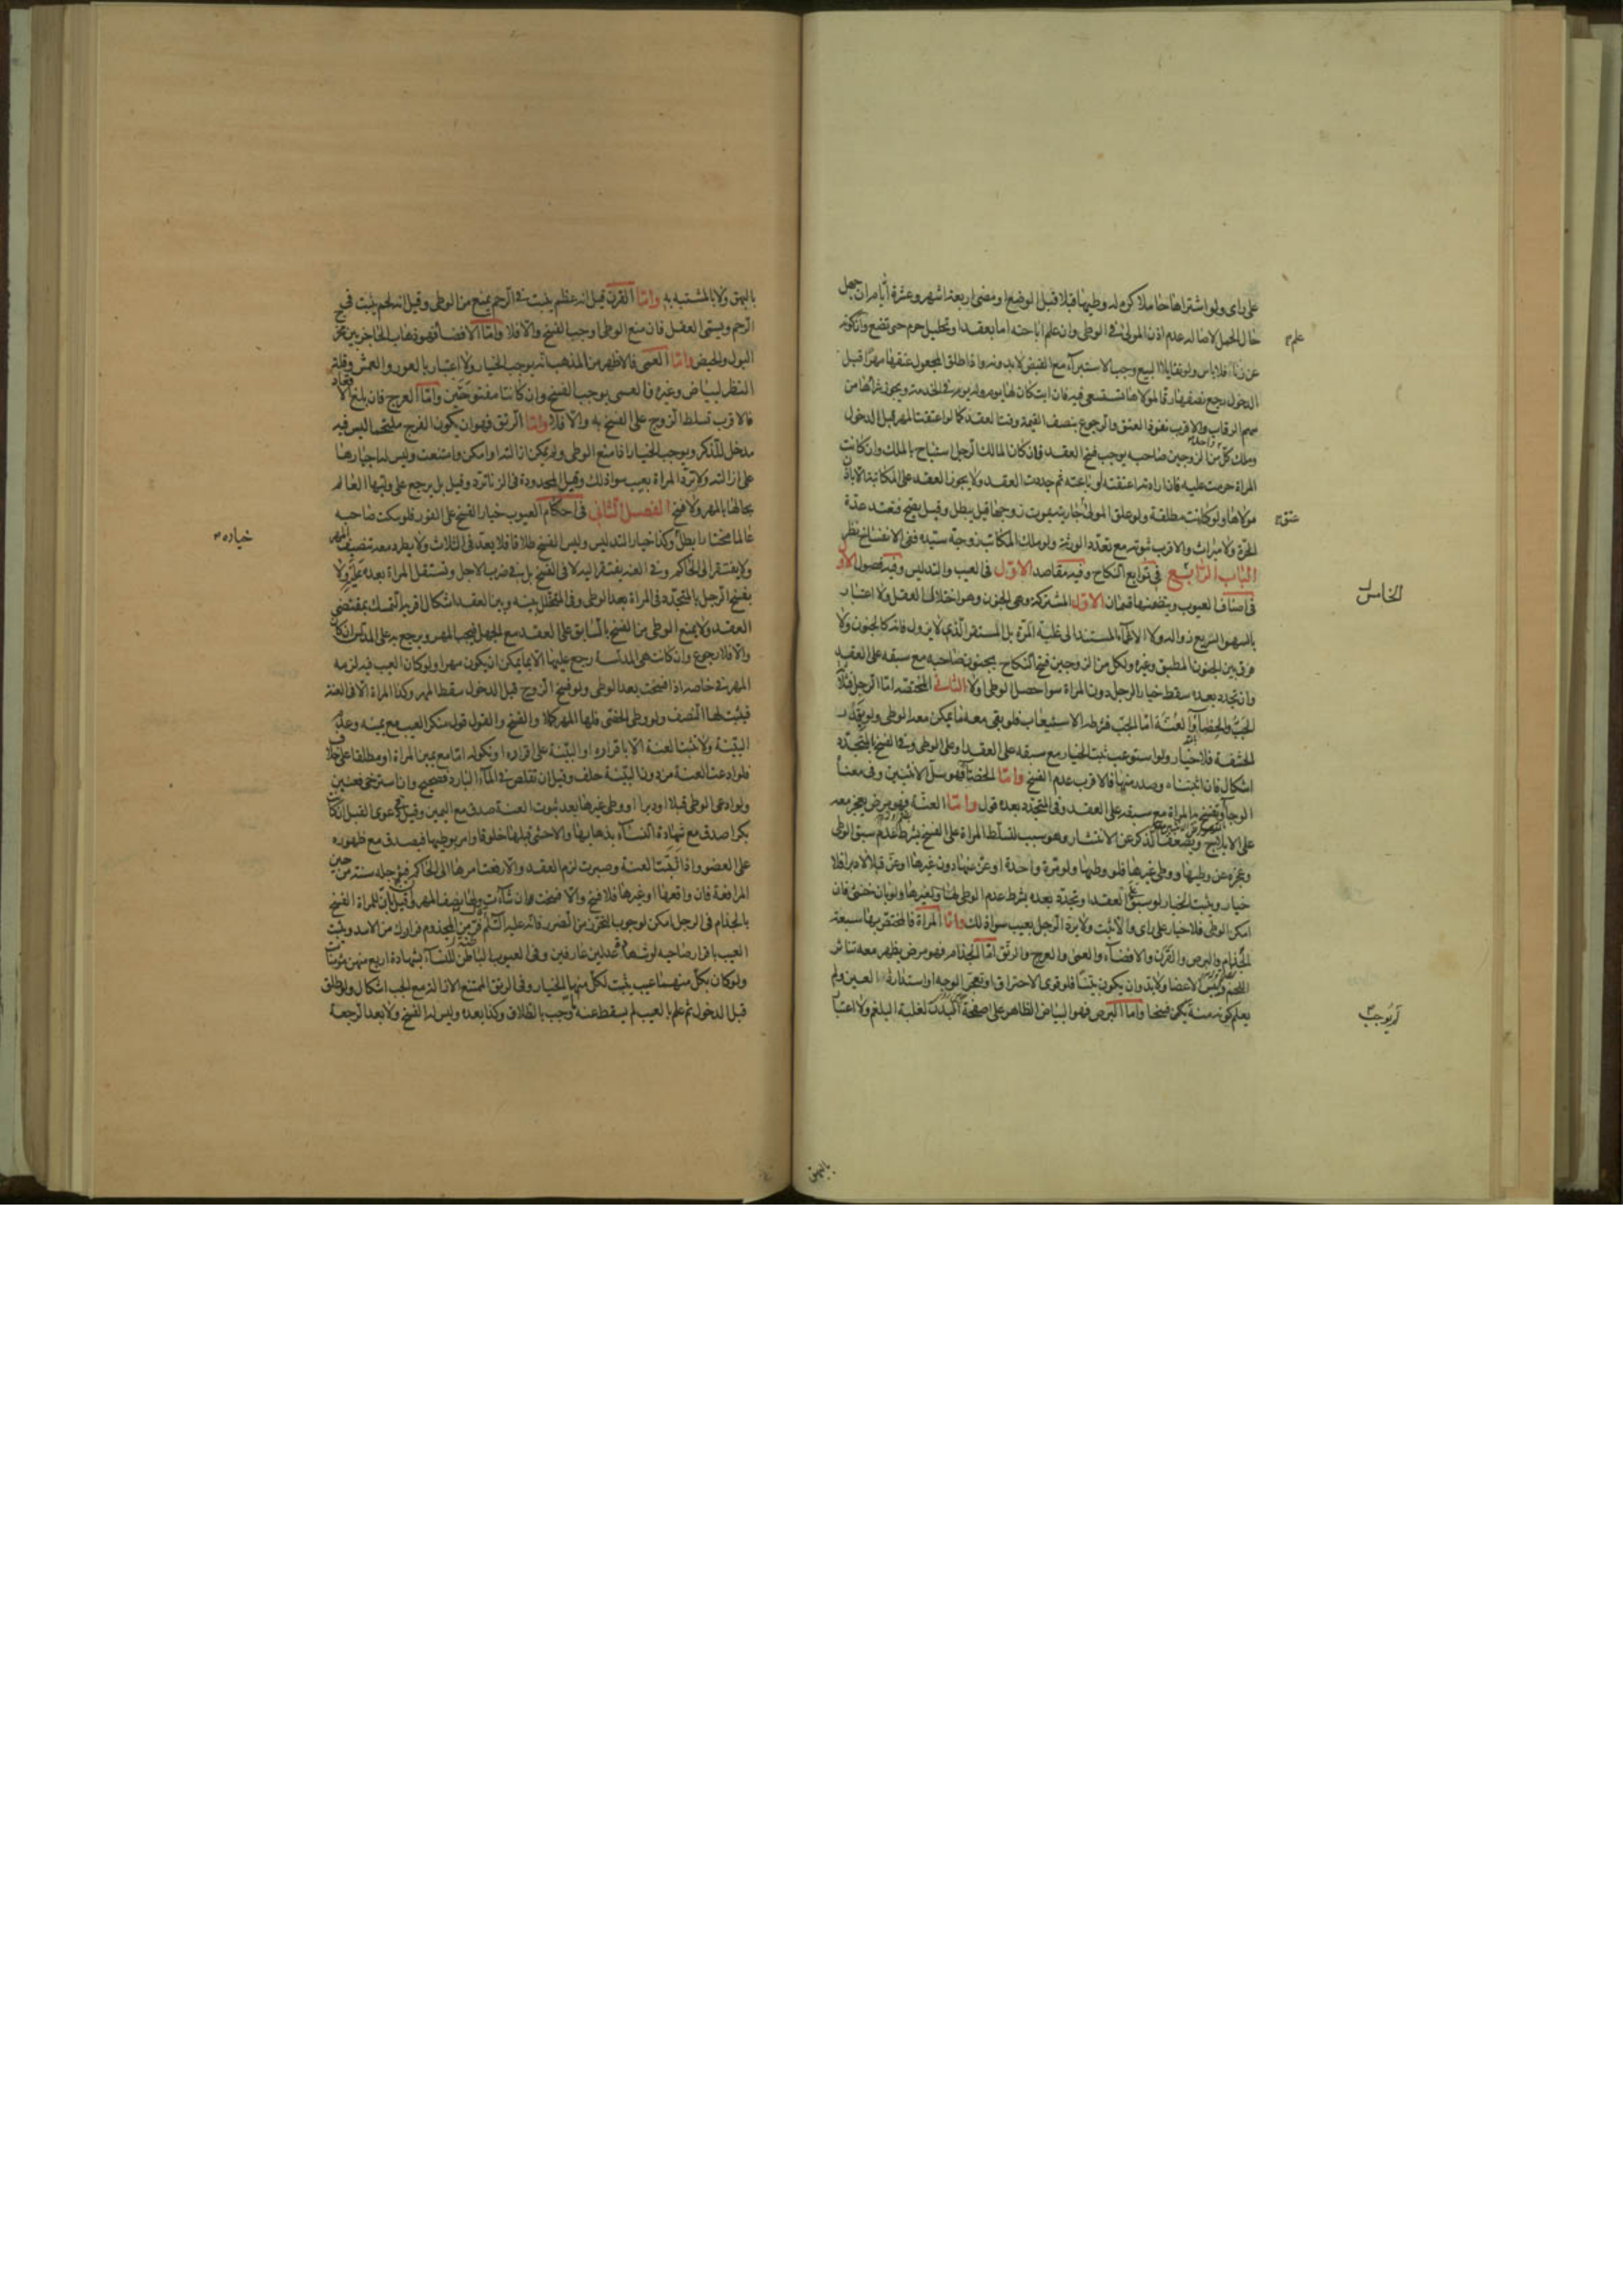 على راى ولو اشتراها حاملا كره له وطيها قبلا قبل الوضع او مضى اربعة اشهر وعشرة ايام ان جهل
حال الحمل لاصالة عدم اذن المولى فى الوطى وان علم اباحته اما بعقد او تحليل حرم حتى تضع وان كونه
علم
عن زنا فلا باس ولو تقايلا البيع وجب الاستبراء مع القبض لا بدونه واذا طلق المجعول عتقها مهرا قبل
الدخول رجع نصفها رقا لمولاها تستسعى فيه فان ابت كان لها يوم وله يوم فى الخدمة ويجوز شراؤها من
سهم الرقاب والاقرب نفوذ العتق والرجوع بنصف القيمة وقت العقد كما لو اعتقت المهر قبل الدخول
وملك كل من الزوجين صاحبه يوجب فسخ العقد فان كان المالك الرجل استباح بالملك وان كانت
المراة حرمت عليه فان ارادته اعتقته او باعته ثم جددت العقد ولا يجوز العقد على المكاتبة الا باذن
مولاها ولو كانت مطلقة ولو علق المولى جاريته بموت زوجها قيل يبطل وقيل يصح فتعتد عدة
عتق
الحرة ولا ميراث والاقرب ثبوته مع تعدد الورثة ولو ملك المكاتب زوجة سيده ففى الانفساخ نظر
الباب الرابع فى توابع النكاح وفيه مقاصد الاول فى العيب والتدليس وفيه فصول الاو
الخامس
فى اصناف العيوب وينظمها قسمان الاول المشتركة وهى الجنون وهو اختلال العقل ولا اعتبار
بالسهو السريع زواله ولا الاغماء المستند الى غلبة المرة بل المستقر الذى لا يزول فانه كالجنون ولا
فرق بين الجنون المطبق وغيره ولكل من الزوجين فسخ النكاح بجنون صاحبه مع سبقه على العقد
وان تجدد بعده سقط خيار الرجل دون المراة سواء حصل الوطى او لا الثانى المختصة اما الرجل فثلاثة
الجب والخصاء والعنة اما الجب فشرطه الاستيعاب فلو بقى معه ما يمكن معه الوطى ولو بقدر
الحشفة فلا خيار ولو استوعب ثبت الخيار مع سبقه على العقد او على الوطى وفى الفسخ بالمتجدد
اشكال فان اثبتناه وصدر منها فالاقرب عدم الفسخ واما الخصاء فهو سل الانثيين وفى معناه
الوجاء وتفسخ به المراة مع سبقه على العقد وفى المتجدد بعده قول واما العنة فهو مرض يعجز معه
على الايلاج ويضعف الذكر عن الانتشار وهو سبب لتسلط المراة على الفسخ بشرط عدم سبق الوطى
وعجزه عن وطيها ووطى غيرها فلو وطيها ولو مرة واحدة او عن منها دون غيرها او عن قبلا لا دبرا فلا
خيار ويثبت الخيار لو سبق العقد او تجدد بعده بشرط عدم الوطى لها ولغيرها ولو بان خنثى فان
امكن الوطى فلا خيار على راى والا ثبت ولا يرد الرجل بعيب سوا ذلك واما المراة فالمختص بها سبعة
الجذام والبرص والقرن والافضاء والعمى والعرج والرتق اما الجذام فهو مرض يظهر معه تناثر
اللحم ويبس الاعضاء ولا بد وان يكون بينا فلو قوى الاحتراق او تعجر الوجه او استدارت العين ولم
يعلم كونه منه لم يكن فسخا واما البرص فهو البياض الظاهر على صفحة البدن لغلبة البلغم ولا اعتبار
لم يوجب
بالبهق
بالبهق ولا بالمشتبه به واما القرن قيل انه عظم ينبت فى الرحم يمنع من الوطى وقيل انه لحم ينبت فى
الرحم ويسمى العفل فان منع الوطى اوجب الفسخ والا فلا واما الافضاء فهو ذهاب الحاجز بين مخرج
البول والحيض واما العمى فالاظهر من المذهب انه يوجب الخيار ولا اعتبار بالعور والعمش وقلة
النظر لبياض وغيره فالعمى يوجب الفسخ وان كانتا مفتوحتين واما العرج فان بلغ الاقعاد
فالاقرب تسلط الزوج على الفسخ به والا فلا واما الرتق فهو ان يكون الفرج ملتحما ليس فيه
مدخل للذكر ويوجب الخيار اذا منع الوطى ولم يمكن ازالته او امكن وامتنعت وليس له اجبارها
على ازالته ولا ترد المراة بعيب سوا ذلك وقيل المحدودة فى الزنا ترد وقيل بل يرجع على وليها العالم
بحالها بالمهر ولا فسخ الفصل الثانى فى احكام العيوب خيار الفسخ على الفور فلو سكت صاحبه
عالما مختارا بطل وكذا خيار التدليس وليس الفسخ طلاقا فلا يعد فى الثلاث ولا يطرد معه تنصيف المهر
خياره
ولا يفتقر الى الحاكم وفى العنة يفتقر اليه لا فى الفسخ بل فى ضرب الاجل وتستقل المراة بعده عليه ولا
يفسخ الرجل بالمتجدد فى المراة بعد الوطى وفى المتخلل بينه وبين العقد اشكال اقربه التمسك بمقتضى
العقد ولا يمنع الوطى من الفسخ بالسابق على العقد مع الجهل فيجب المهر ويرجع به على المدلس ان كان
والا فلا رجوع وان كانت هى المدلسة رجع عليها الا بما يمكن ان يكون مهرا ولو كان العيب فيه لزمه
المهر فى خاصه اذا فسخت بعد الوطى ولو فسخ الزوج قبل الدخول سقط المهر وكذا المراة الا فى العنة
فيثبت لها النصف ولو وطى الخصى فلها المهر كملا والفسخ والقول قول منكر العيب مع يمينه وعدم
البينة ولا تثبت العنة الا باقراره او البينة على اقراره او نكوله اما مع يمين المراة او مطلقا على خلاف
فلو ادعت العنة من دون البينة حلف وقيل ان تقلص فى الماء البارد فصحيح وان استرخى فعنين
ولو ادعى الوطى قبلا او دبرا او وطى غيرها بعد ثبوت العنة صدق مع اليمين وقيل فى دعوى القبل ان كانت
بكرا صدق مع شهادة النساء بذهابها والا حشى قبلها خلوقا وامر بوطيها فيصدق مع ظهوره
على العضو واذا ثبتت العنة وصبرت لزم العقد والا رفعت امرها الى الحاكم فيؤجله سنة من حين
المرافعة فان واقعها او غيرها فلا فسخ والا فسخت ان شاءت ولها نصف المهر وقيل بان للمراة الفسخ
بالجذام فى الرجل امكن لوجوب التحرز من الضرر فانه عليه السلم قال فر من المجذوم فرارك من الاسد ويثبت
العيب باقرار صاحبه او شهادة عدلين عارفين وفى العيوب الباطنة للنساء بشهادة اربع منهن مؤمنات
ولو كان بكل منهما عيب يثبت لكل منهما الخيار وفى الرتق الممتنع الازالة مع الجب اشكال ولو طلق
قبل الدخول ثم علم بالعيب لم يسقط عنه ما وجب بالطلاق وكذا بعده وليس له الفسخ ولا بعد الرجعة